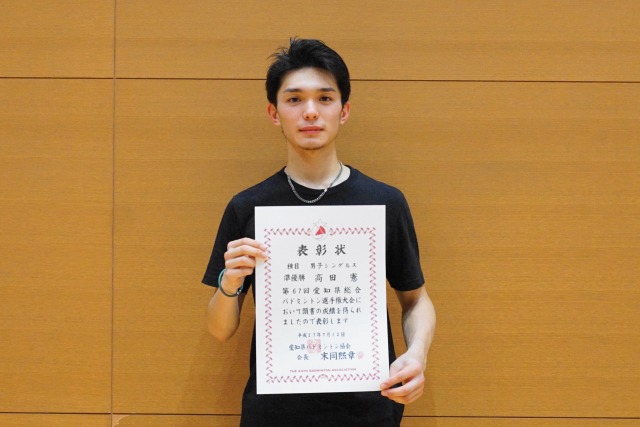 表彰状
種目 男子シングルス
準優勝 高田 憲
第67回愛知県総合
バドミントン選手権大会に
おいて頭書の成績を得られ
ましたので表彰します
平成27年7月12日
愛知県バドミントン協会
会長 末岡熙章
THE AICHI BADMINTON ASSOCIATION